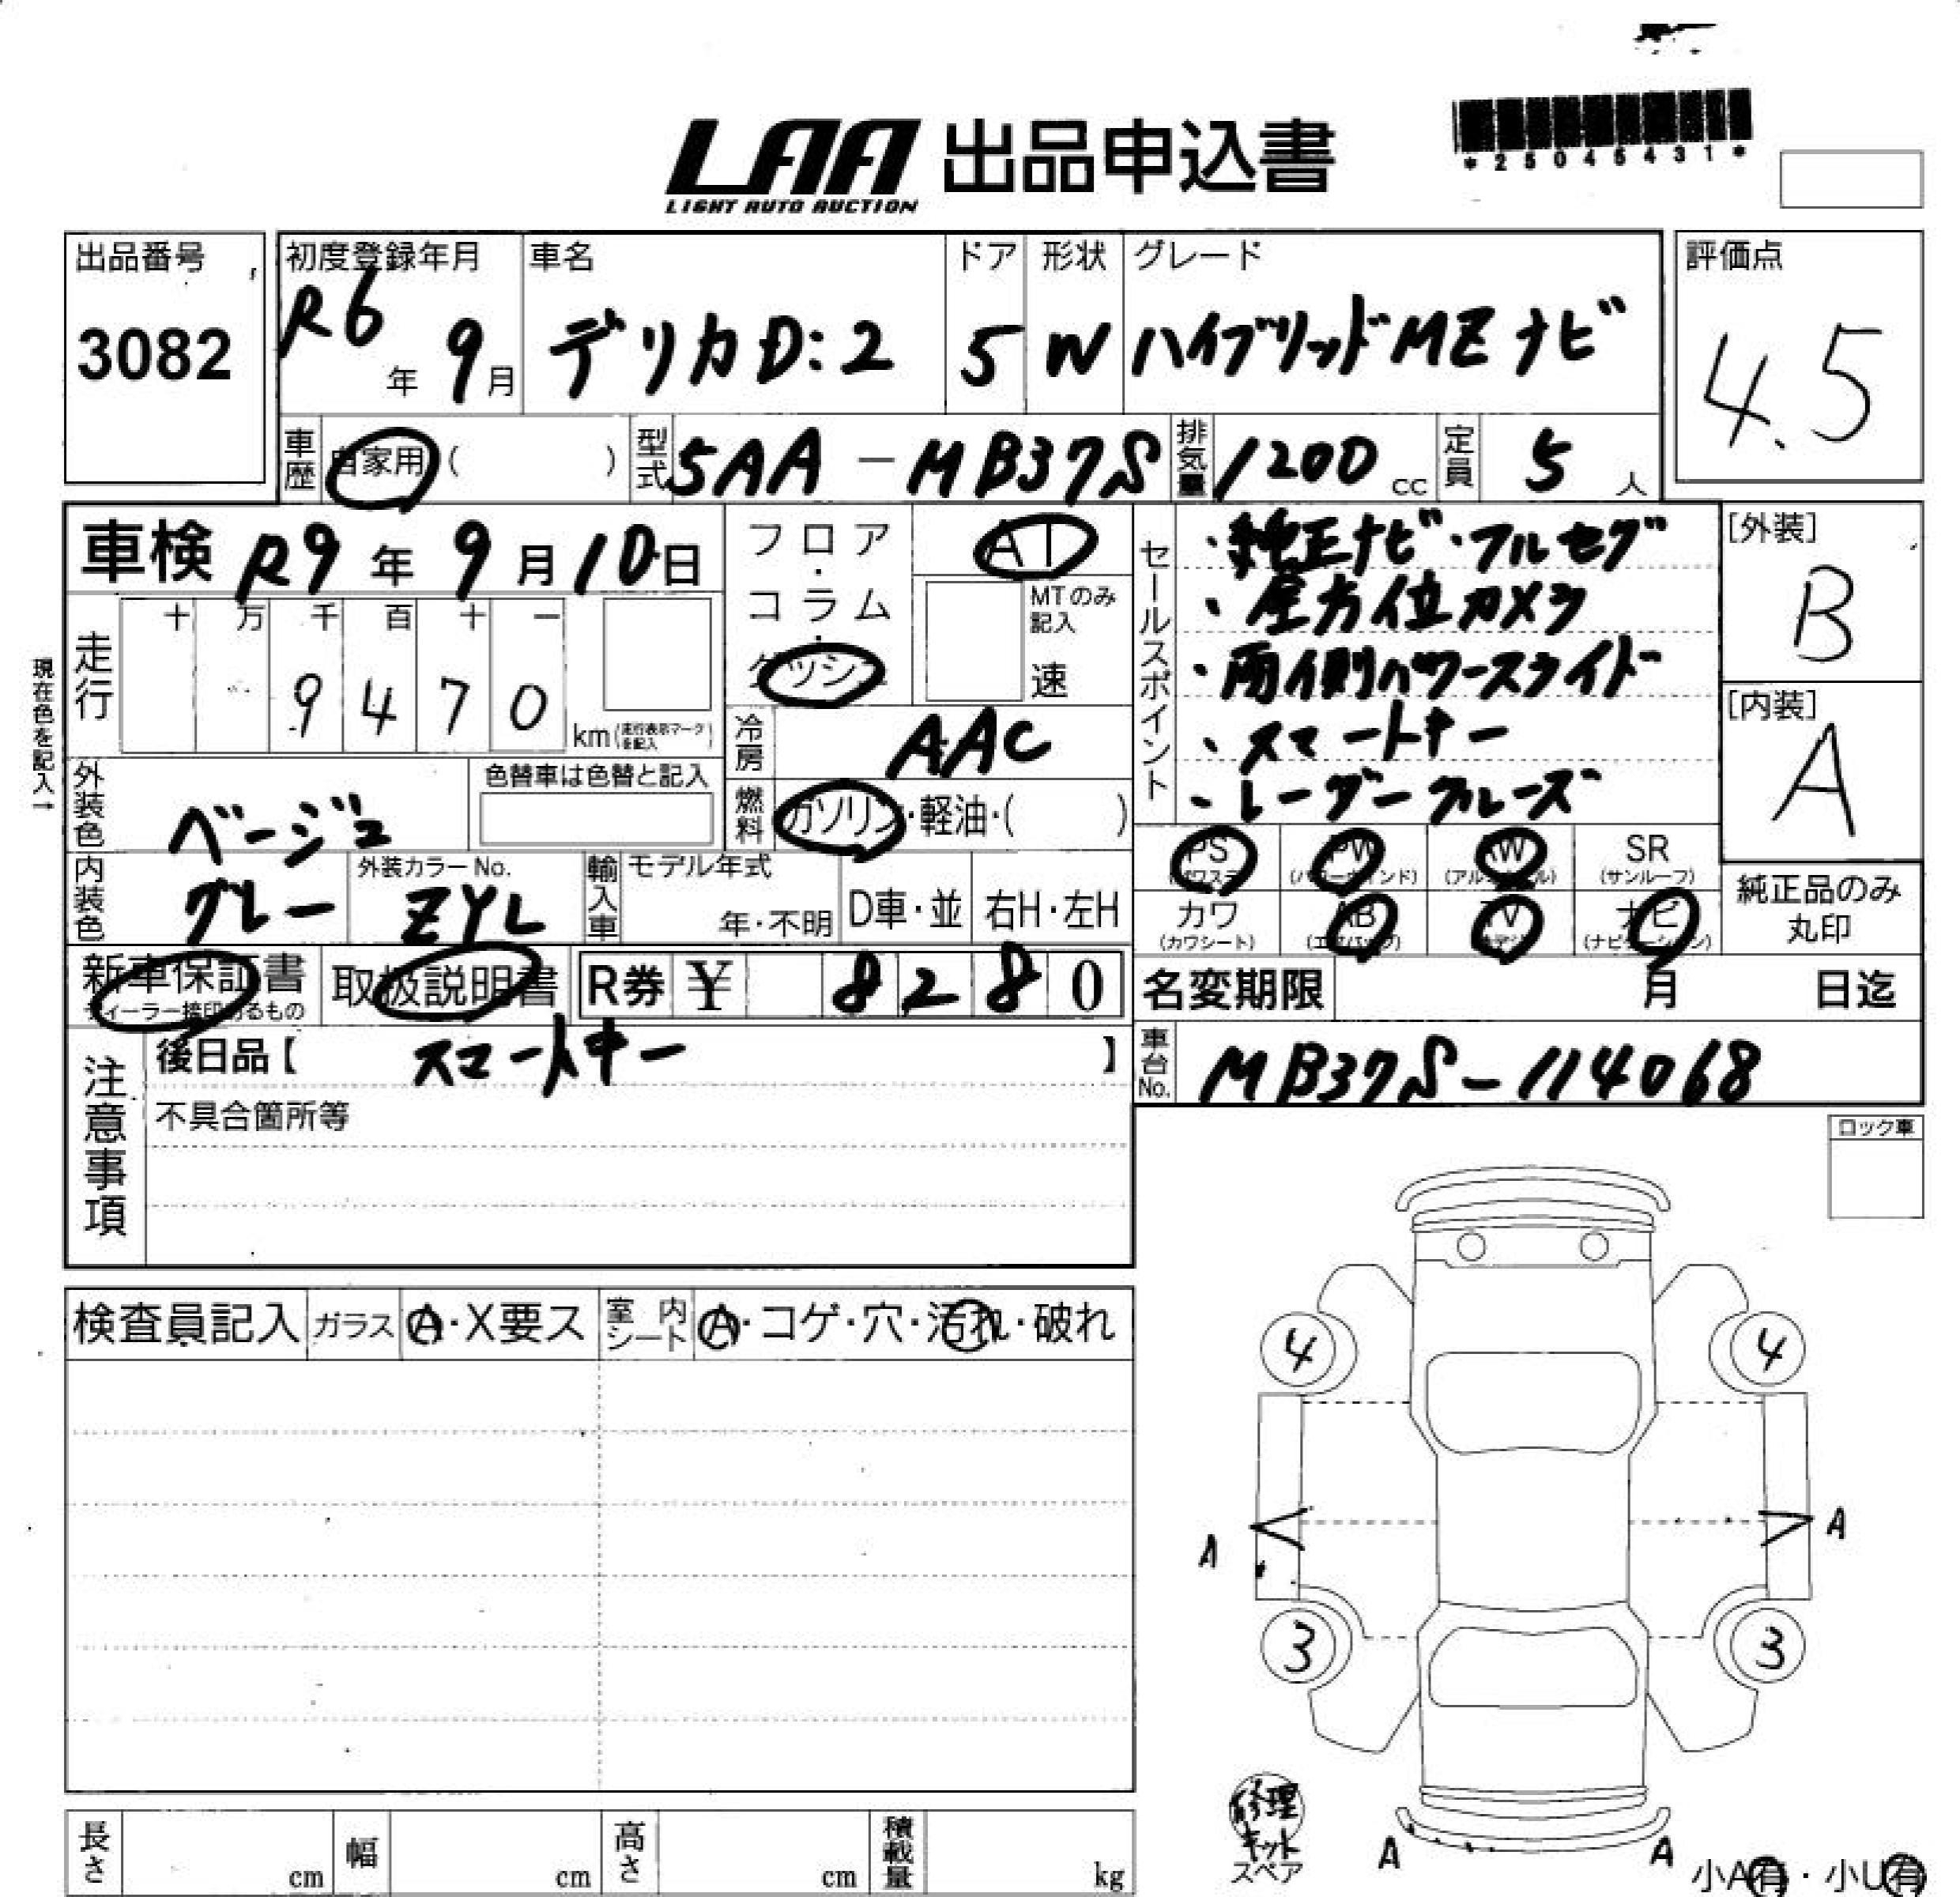 LAA 出品申込書
LIGHT AUTO AUCTION
*25045431*
出品番号 初度登録年月 車名 ドア 形状 グレード 評価点
3082 R6年 9月 デリカD:2 5 W ハイブリッドMZ ナビ 4.5
車歴 自家用 ( ) 型式 5AA-MB37S 排気量 1200 cc 定員 5 人
車検 R9年 9月 10日 フロア・コラム・ダッシュ AT
MTのみ記入 速
走行 十 万 千 百 十 一
9 4 7 0 km (走行表示マークを記入)
現在色を記入→
冷房 AAC
燃料 ガソリン・軽油・( )
セールスポイント
・純正ナビ・フルセグ
・全方位カメラ
・両側パワースライド
・スマートキー
・レーダークルーズ
[外装] B
[内装] A
外装色 ベージュ 色替車は色替と記入
内装色 グレー 外装カラーNo. ZYL 輸入車 モデル年式 年・不明 D車・並 右H・左H
PS (パワステ) PW (パワーウインド) AW (アルミホイル) SR (サンルーフ)
カワ (カワシート) AB (エアバッグ) TV ナビ (ナビゲーション)
純正品のみ丸印
新車保証書 ディーラー捺印あるもの 取扱説明書 R券 ¥ 8 2 8 0 名変期限 月 日迄
注意事項 後日品【 スマートキー 】 車台No. MB37S-114068
不具合箇所等
ロック車
検査員記入 ガラス A・X要ス 室内シート A・コゲ・穴・汚れ・破れ
4 4
A A
3 3
修理キット
スペア
A A
小A有・小U有
長さ cm 幅 cm 高さ cm 積載量 kg